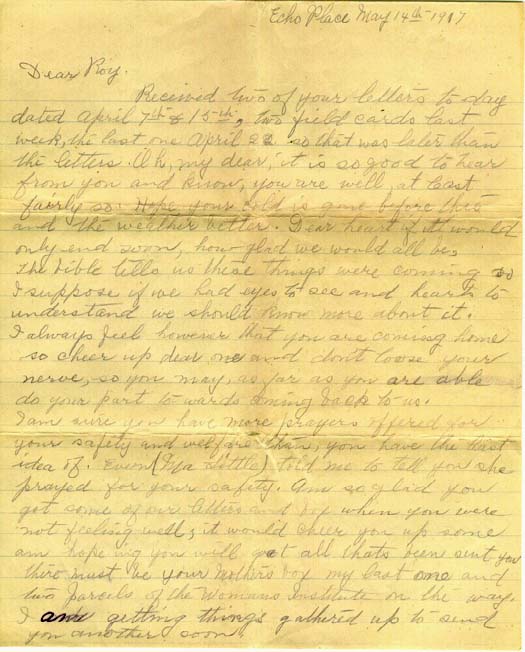 Echo Place May 14th 1917
Dear Roy.
Received two of your letters to day
dated April 7th & 15th, two field cards last
week, the last one April 22 so that was later than
the letters. Oh, my dear, it is so good to hear
from you and know, you are well, at least
fairly so. Hope your cold is gone before this
and the weather better. Dear heart if it would
only end soon, how glad we would all be,
The Bible tells us these things were coming so
I suppose if we had eyes to see and hearts to
understand we should know more about it.
I always feel however that you are coming home
so cheer up dear one and don't loose your
nerve, so you may, as far as you are able
do your part to wards coming back to us.
I am sure you have more prayers offered for
your safety and welfare than, you have the least
idea of. Even ( Little) told me to tell you she
prayed for your safety. Am so glad you
got some of our letters and box when you were
not feeling well, it would cheer you up some
am hope ing you will get all thats been sent you
there must be your Mothers box my last one and
two parcels of the Womans Institute on the way.
I am getting things gathered up to send
you another soon.